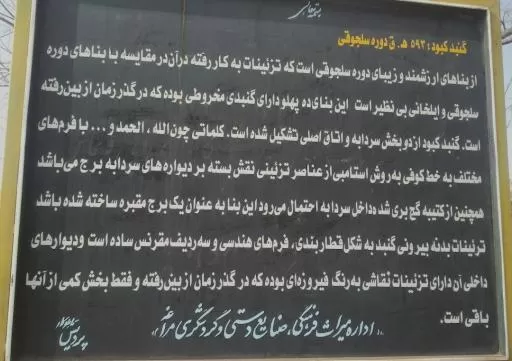 بسمه تعالی
گنبد کبود : ۵۹۳ هـ . ق دوره سلجوقی
از بناهای ارزشمند و زیبای دوره سلجوقی است که تزئینات به کار رفته در آن در مقایسه با بناهای دوره
سلجوقی و ایلخانی بی نظیر است این بنای ده پهلو دارای گنبدی مخروطی بوده که در گذر زمان از بین رفته
است. گنبد کبود از دو بخش سردابه و اتاق اصلی تشکیل شده است. کلماتی چون الله ، الحمد و ... با فرم های
مختلف به خط کوفی به روش استامبی از عناصر تزئینی نقش بسته بر دیواره های سردابه برج می باشد
همچنین از کتیبه گچ بری شده داخل سردابه احتمال می رود این بنا به عنوان یک برج مقبره ساخته شده باشد
تزئینات بدنه بیرونی گنبد به شکل قطار بندی، فرم های هندسی و سه ردیف مقرنس ساده است و دیوارهای
داخلی آن دارای تزئینات نقاشی به رنگ فیروزه ای بوده که در گذر زمان از بین رفته و فقط بخش کمی از آنها
باقی است.
اداره میراث فرهنگی، صنایع دستی و گردشگری مراغه
پردیس